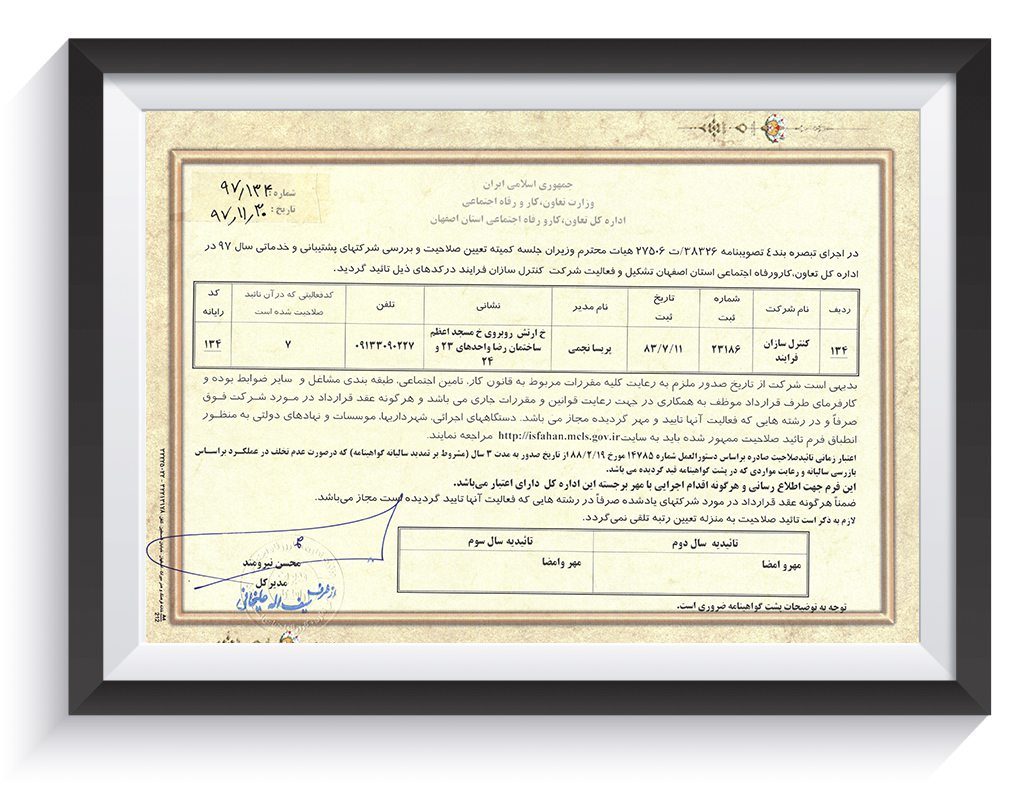 جمهوری اسلامی ایران
وزارت تعاون،کار و رفاه اجتماعی
اداره کل تعاون،کارو رفاه اجتماعی استان اصفهان
شماره: ۹۷/۱۳۴
تاریخ: ۹۷/۱۱/۳۰
در اجرای تبصره بند٤ تصویبنامه ۳۸۳۲۶/ت ۲۷۵۰۶ هیات محترم وزیران جلسه کمیته تعیین صلاحیت و بررسی شرکتهای پشتیبانی و خدماتی سال ۹۷ در
اداره کل تعاون،کارورفاه اجتماعی استان اصفهان تشکیل و فعالیت شرکت کنترل سازان فرایند درکدهای ذیل تائید گردید.
ردیف نام شرکت شماره ثبت تاریخ ثبت نام مدیر نشانی تلفن کدفعالیتی که درآن تائید صلاحیت شده است کد رایانه
۱۳۴ کنترل سازان فرایند ۲۳۱۸۶ ۸۳/۷/۱۱ پریسا نجمی خ ارتش روبروی خ مسجد اعظم ساختمان رضا واحدهای ۲۳ و ۲۴ ۰۹۱۳۳۰۹۰۲۲۷ ۷ ۱۳۴
بدیهی است شرکت از تاریخ صدور ملزم به رعایت کلیه مقررات مربوط به قانون کار، تامین اجتماعی، طبقه بندی مشاغل و سایر ضوابط بوده و
کارفرمای طرف قرارداد موظف به همکاری در جهت رعایت قوانین و مقررات جاری می باشد و هرگونه عقد قرارداد در مورد شرکت فوق
صرفاً و در رشته هایی که فعالیت آنها تایید و مهر گردیده مجاز می باشد. دستگاههای اجرائی، شهرداریها، موسسات و نهادهای دولتی به منظور
انطباق فرم تائید صلاحیت ممهور شده باید به سایت http://isfahan.mcls.gov.ir مراجعه نمایند.
اعتبار زمانی تائیدصلاحیت صادره براساس دستورالعمل شماره ۱۴۷۸۵ مورخ ۸۸/۲/۱۹ از تاریخ صدور به مدت ۳ سال (مشروط بر تمدید سالیانه گواهینامه) که درصورت عدم تخلف در عملکرد براساس
بازرسی سالیانه و رعایت مواردی که در پشت گواهینامه قید گردیده می باشد.
این فرم جهت اطلاع رسانی و هرگونه اقدام اجرایی با مهر برجسته این اداره کل دارای اعتبار می‌باشد.
ضمناً هرگونه عقد قرارداد در مورد شرکتهای یادشده صرفاً در رشته هایی که فعالیت آنها تایید گردیده است مجاز می‌باشد.
لازم به ذکر است تائید صلاحیت به منزله تعیین رتبه تلقی نمی‌گردد.
تائیدیه سال دوم تائیدیه سال سوم
مهرو امضا مهر وامضا
محسن نیرومند
مدیرکل
از طرف
سیف اله علیخانی
توجه به توضیحات پشت گواهینامه ضروری است.